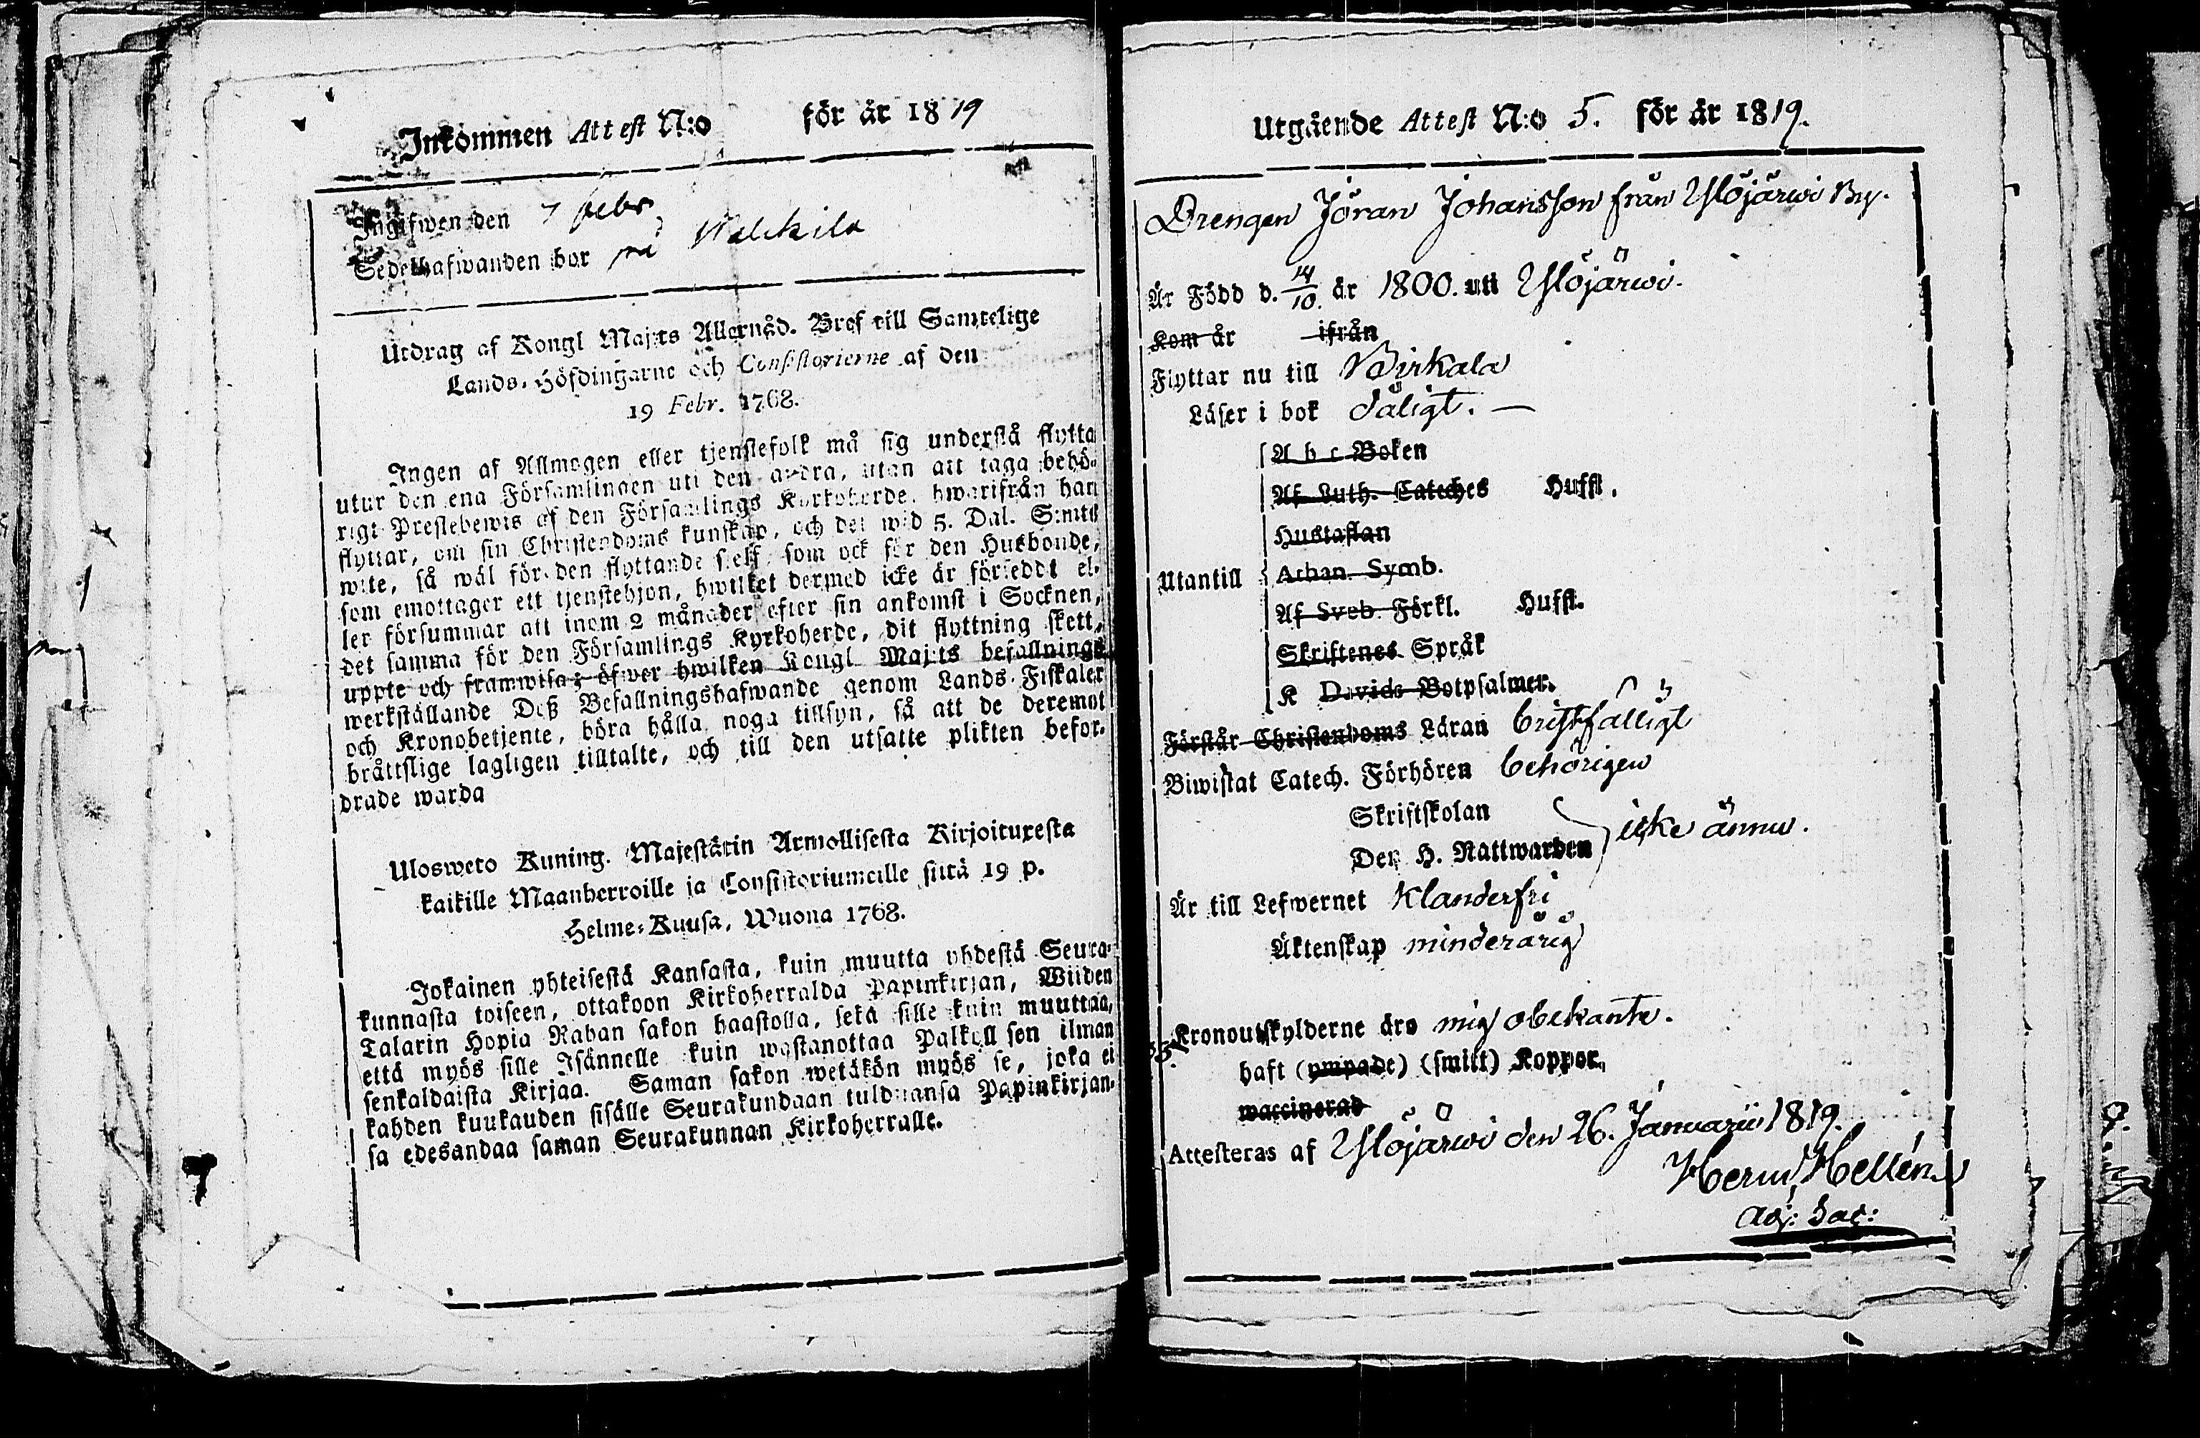 Inkommen Attest N:o för år 1819
Ingifwen den 7 febr
Sedelhafwanden bor på Walkila
Utdrag af Kongl Maj:ts Allernåd. Bref till Samtelige
Lands-Höfdingarne och Consistorierne af den
19 Febr. 1768.
Ingen af Allmogen eller tjenstefolk må sig understå flytta
utur den ena Församlingen uti den andra, utan att taga behö-
rigt Prestebewis af den Församlings Kyrkoherde, hwarifrån han
flyttar, om sin Christendoms kunskap, och det wid 5. Dal. S:mts
wite, så wäl för den flyttande sjelf, som ock för den Husbonde,
som emottager ett tjenstehjon, hwilket dermed icke är försedt el-
ler försummar att inom 2 månader efter sin ankomst i Socknen,
det samma för den Församlings Kyrkoherde, dit flyttning skett,
uppte och framwisa; öfwer hwilken Kongl Maj:ts befallnings
werkställande Deß Befallningshafwande genom Lands-Fiskaler
och Kronobetjente, böra hålla noga tillsyn, så att de deremot
bråttslige lagligen tilltalte, och till den utsatte plikten befor-
drade warda
Ulosweto Kuning. Majestätin Armollisesta Kirjoituxesta
kaikille Maanherroille ja Consistoriumeille siitä 19 p.
Helme-Kuusa, Wuona 1768.
Jokainen yhteisestä Kansasta, kuin muutta yhdestä Seura-
kunnasta toiseen, ottakoon Kirkoherralda Papinkirjan, Wiiden
Talarin Hopia Rahan sakon haastolla, sekä sille kuin muuttaa,
että myös sille Isännelle kuin wastanottaa Palkollisen ilman
senkaldaista Kirjaa. Saman sakon wetäkön myös se, joka ei
kahden kuukauden sisälle Seurakundaan tulduansa Papinkirjan-
sa edesandaa saman Seurakunnan Kirkoherralle.
Utgående Attest N:o 5. för år 1819.
Drengen Jöran Johansson från Ylöjärwi By.
Är Född d. 14/10. år 1800. uti Ylöjärwi.
Kom år ifrån
Flyttar nu till Birkala
Läser i bok dåligt. —
A b c Boken
Af Luth. Cateches Hufst.
Hustaflan
Utantill Athan. Symb.
Af Sveb. Förkl. Hufst.
Skriftenes Språk
K Davids Botpsalmer.
Förstår Christendoms Läran bristfälligt
Biwistat Catech. Förhören behörigen
Skriftskolan
Den H. Nattwarden icke ännu.
Är till Lefwernet Klanderfri
Äktenskap minderårig
Kronoutskylderne äro mig obekante.
haft (ympade) (smitt) Koppor,
waccinerad
Attesteras af Ylöjärwi den 26. Januarii 1819.
Herm Hellén
Adj: Sac: